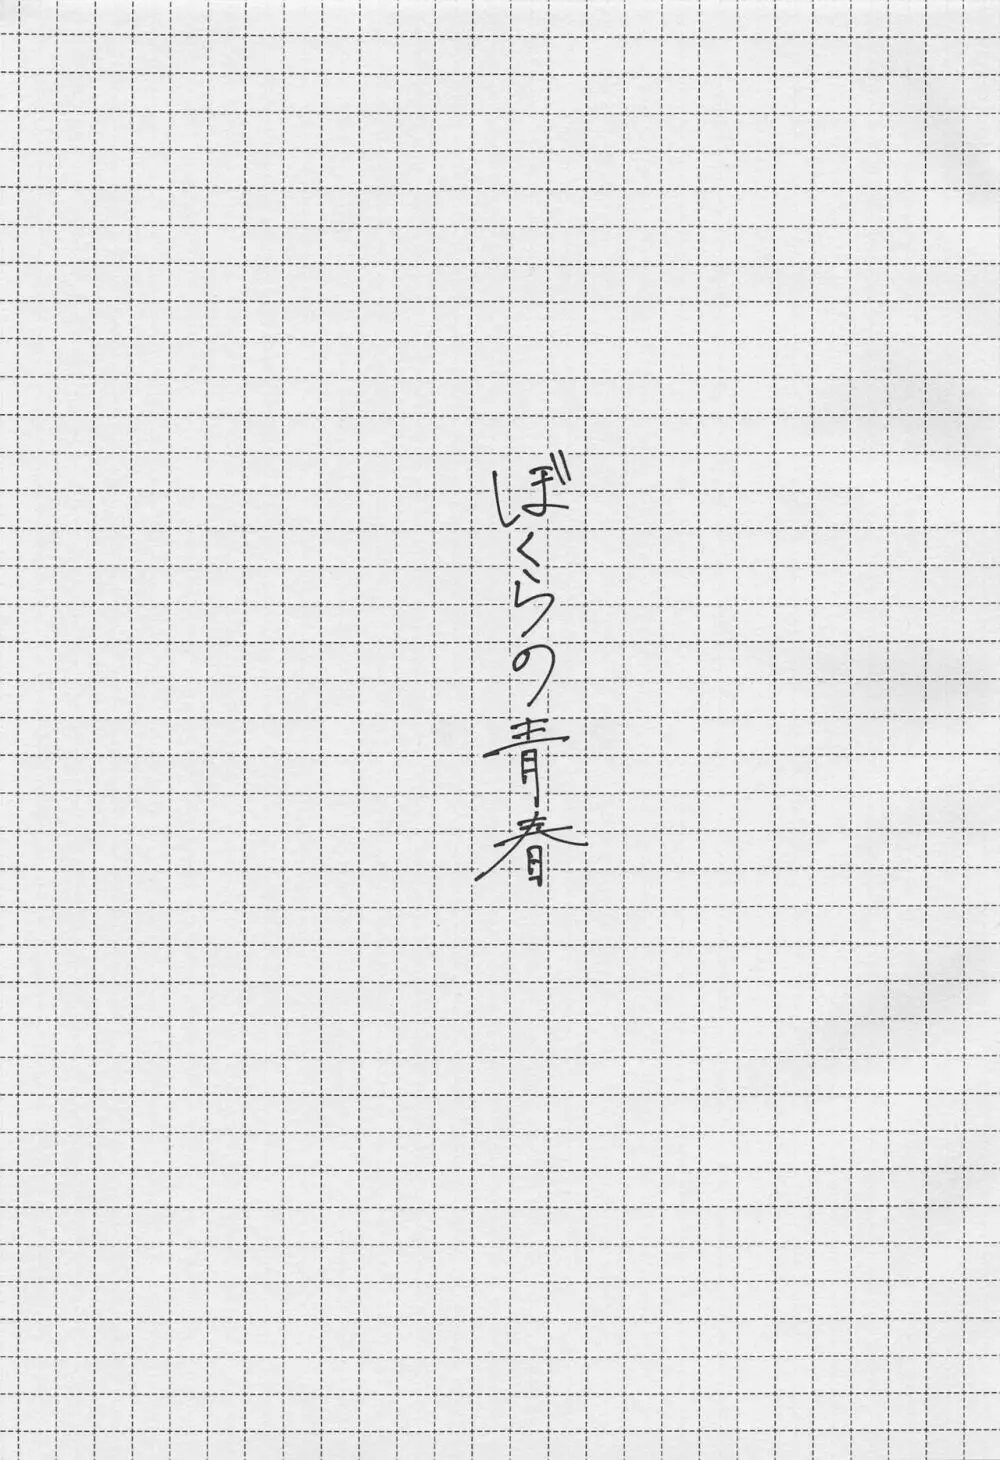 ぼくらの青春